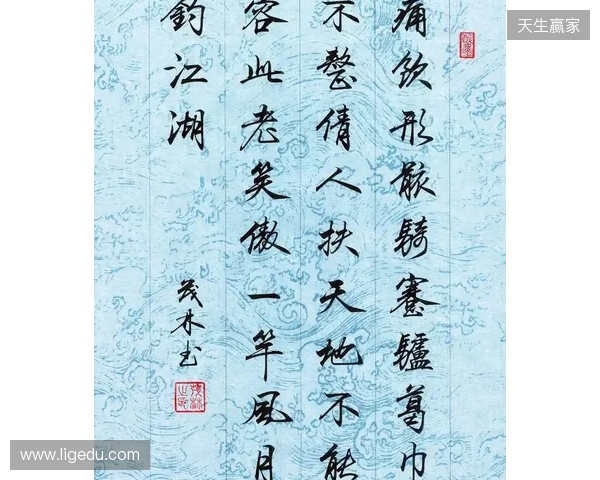 天生赢家
痛飲形骸騎蹇驢葛巾
不整倩人扶天地不能
容此老笑傲一竿風月
釣江湖
茂林书
www.ligedu.com